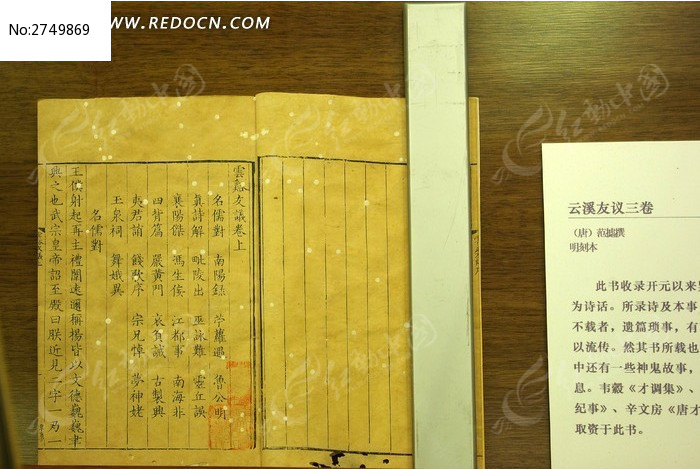 No:2749869
WWW.REDOCN.COM
雲谿友議卷上
名儒對 南陽錄 苧蘿遇 魯公明
真詩解 毗陵出 巫詠難 靈丘誤
襄陽傑 馮生佞 江都事 南海非
四背篇 嚴黃門 哀貧誡 古製興
夷君誚 餞歌序 宗兄悼 夢神姥
玉泉祠 舞娥異
名儒對
王僕射起再主禮闈遠邇稱揚皆以文德巍巍聿
興之也武宗皇帝詔至殿曰朕近見二字一為一
云溪友议三卷
（唐）范摅撰
明刻本
此书收录开元以来
为诗话。所录诗及本事
不载者，遗篇琐事，有
以流传。然其书所载也
中还有一些神鬼故事，
息。韦縠《才调集》、
纪事》、辛文房《唐才
取资于此书。
红动中国